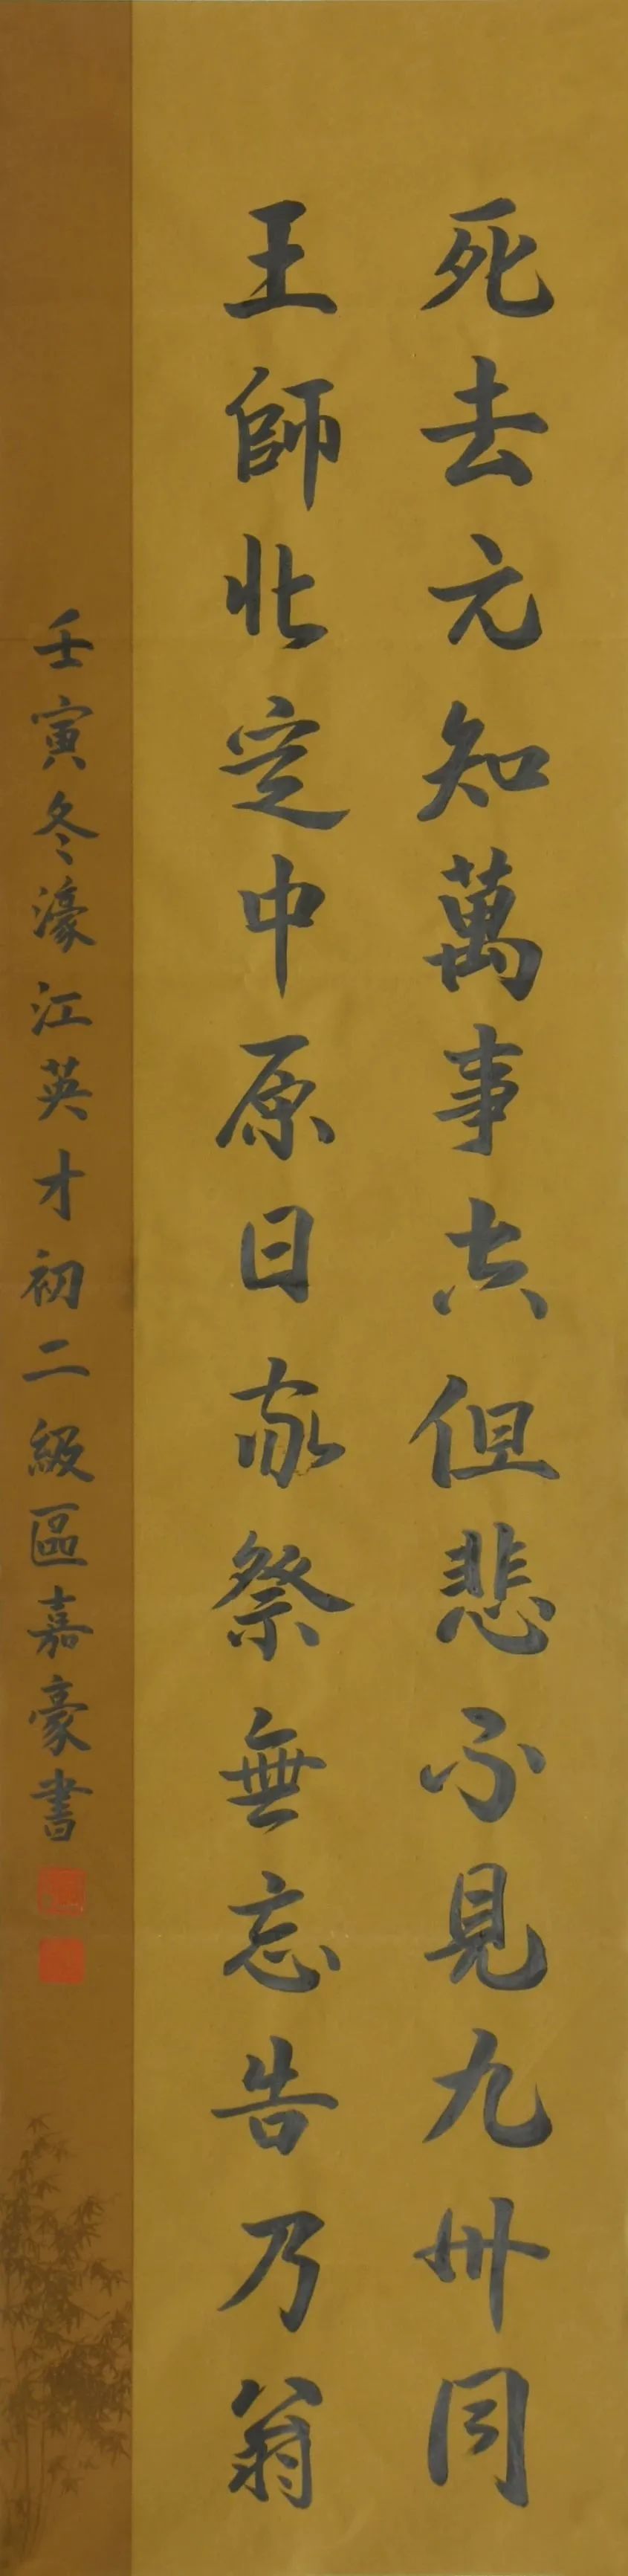 死去元知萬事空但悲不見九州同
王師北定中原日家祭無忘告乃翁
壬寅冬濠江英才初二級區嘉豪書